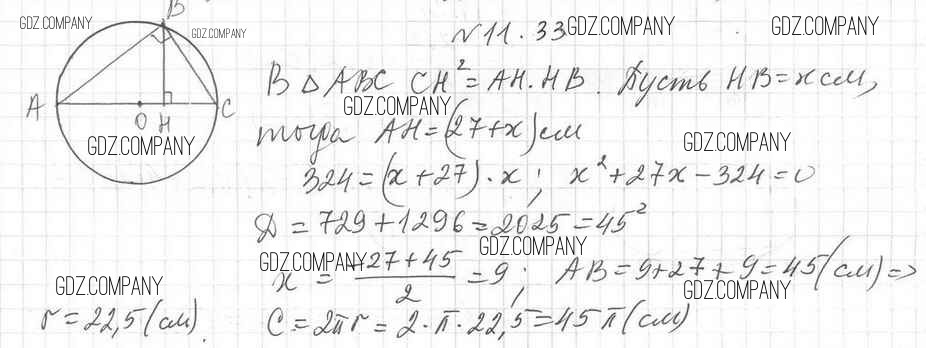 GDZ.COMPANY
B
GDZ.COMPANY
№11.33 GDZ.COMPANY
GDZ.COMPANY
A
O
H
C
GDZ.COMPANY
В △ABC CH² = AH · HB. Пусть HB = x см,
GDZ.COMPANY
тогда AH = (27+x) см
GDZ.COMPANY
324 = (x+27)·x ; x²+27x-324=0
Д = 729+1296=2025=45²
GDZ.COMPANY
GDZ.COMPANY
x = -27+45/2 = 9 ; AB = 9+27+9=45(см) =>
GDZ.COMPANY
GDZ.COMPANY
r = 22,5 (см). C = 2πr = 2·π·22,5 = 45π(см)